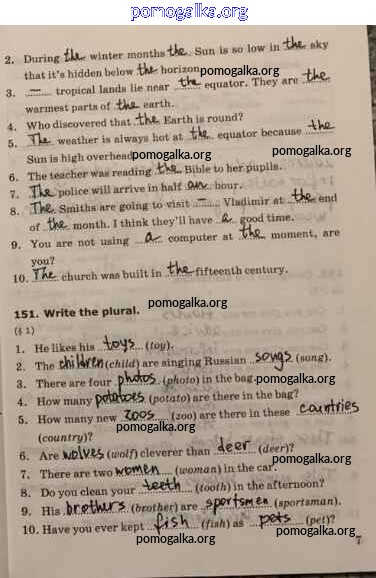 pomogalka.org
2. During the winter months the Sun is so low in the sky
that it's hidden below the horizon. pomogalka.org
3. – tropical lands lie near the equator. They are the
warmest parts of the earth.
4. Who discovered that the Earth is round?
pomogalka.org
5. The weather is always hot at the equator because the
Sun is high overhead. pomogalka.org
6. The teacher was reading the Bible to her pupils.
7. The police will arrive in half an hour. pomogalka.org
8. The Smiths are going to visit – Vladimir at the end
of the month. I think they'll have a good time.
pomogalka.org
9. You are not using a computer at the moment, are
you? pomogalka.org
10. The church was built in the fifteenth century.
pomogalka.org
151. Write the plural.
(§ 1)
1. He likes his toys (toy). pomogalka.org
2. The children (child) are singing Russian songs (song).
3. There are four photos (photo) in the bag. pomogalka.org
4. How many potatoes (potato) are there in the bag?
5. How many new zoos (zoo) are there in these countries
(country)? pomogalka.org
6. Are wolves (wolf) cleverer than deer (deer)?
pomogalka.org
7. There are two women (woman) in the car.
8. Do you clean your teeth (tooth) in the afternoon?
pomogalka.org
9. His brothers (brother) are sportsmen (sportsman).
10. Have you ever kept fish (fish) as pets (pet)?
pomogalka.org
7